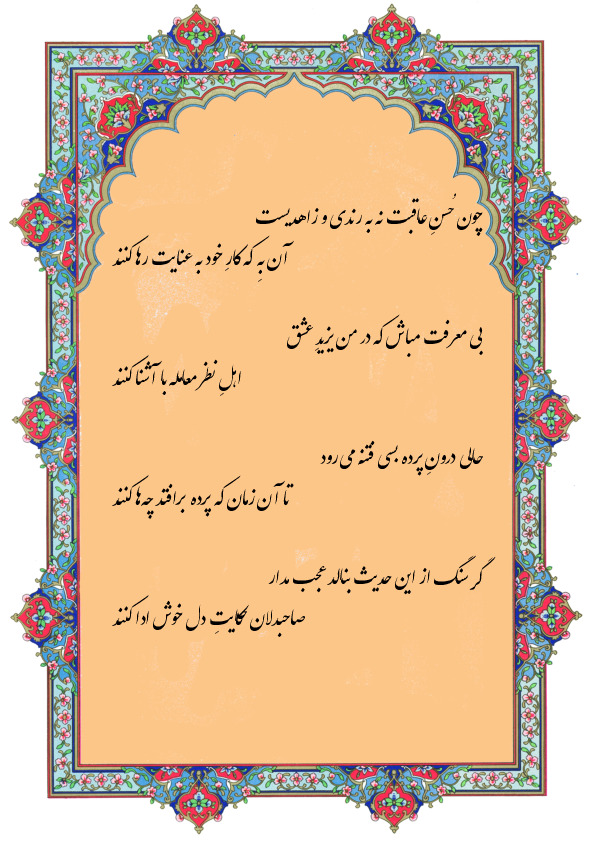 چون حُسنِ عاقبت نه به رندی و زاهدیست
آن بِه که کارِ خود به عنایت رها کنند
بی معرفت مباش که در من یزیدِ عشق
اهلِ نظر معامله با آشنا کنند
حالی درونِ پرده بسی فتنه می‌رود
تا آن زمان که پرده برافتد چه‌ها کنند
گر سنگ از این حدیث بنالد عجب مدار
صاحبدلان حکایتِ دل خوش ادا کنند